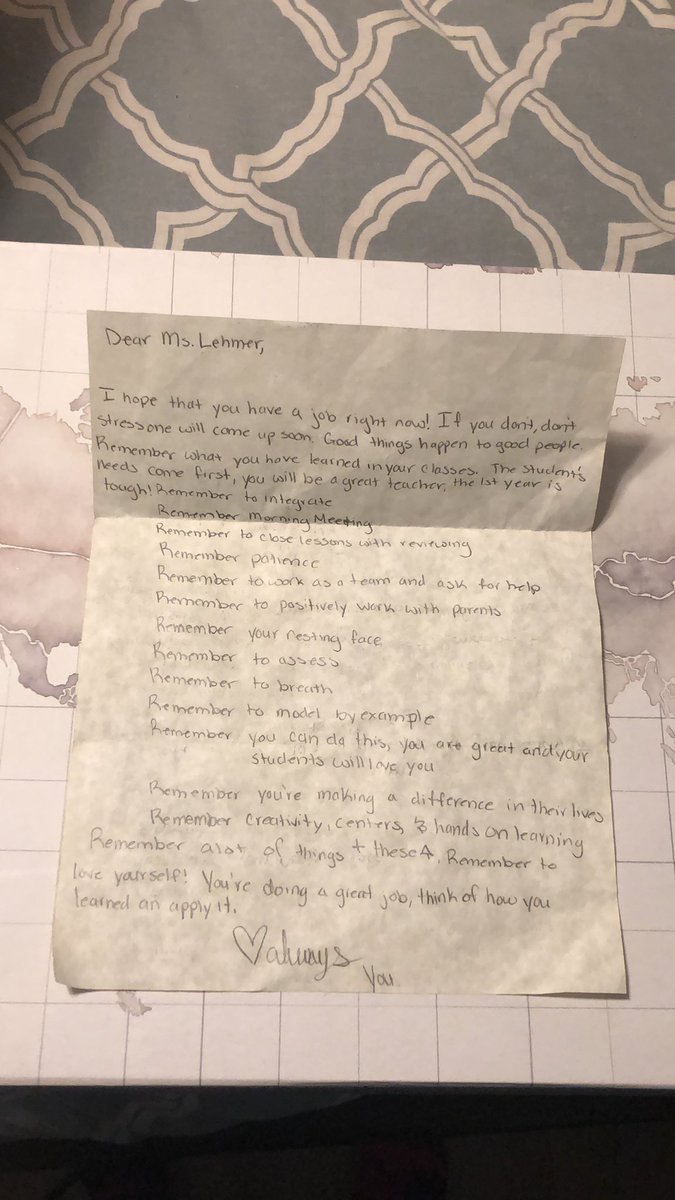 Dear Ms. Lehmer,
I hope that you have a job right now! If you dont, don't
stress one will come up soon. Good things happen to good people.
Remember what you have learned in your classes. The student's
needs come first, you will be a great teacher, the 1st year is
tough! Remember to integrate
Remember Morning Meeting
Remember to close lessons with reviewing
Remember patience
Remember to work as a team and ask for help
Remember to positively work with parents
Remember your resting face
Remember to assess
Remember to breath
Remember to model by example
Remember you can do this, you are great and your
students will love you
Remember you're making a difference in their lives
Remember creativity, centers, & hands on learning
Remember alot of things + these 4, Remember to
love yourself! You're doing a great job, think of how you
learned an apply it.
♡always
you